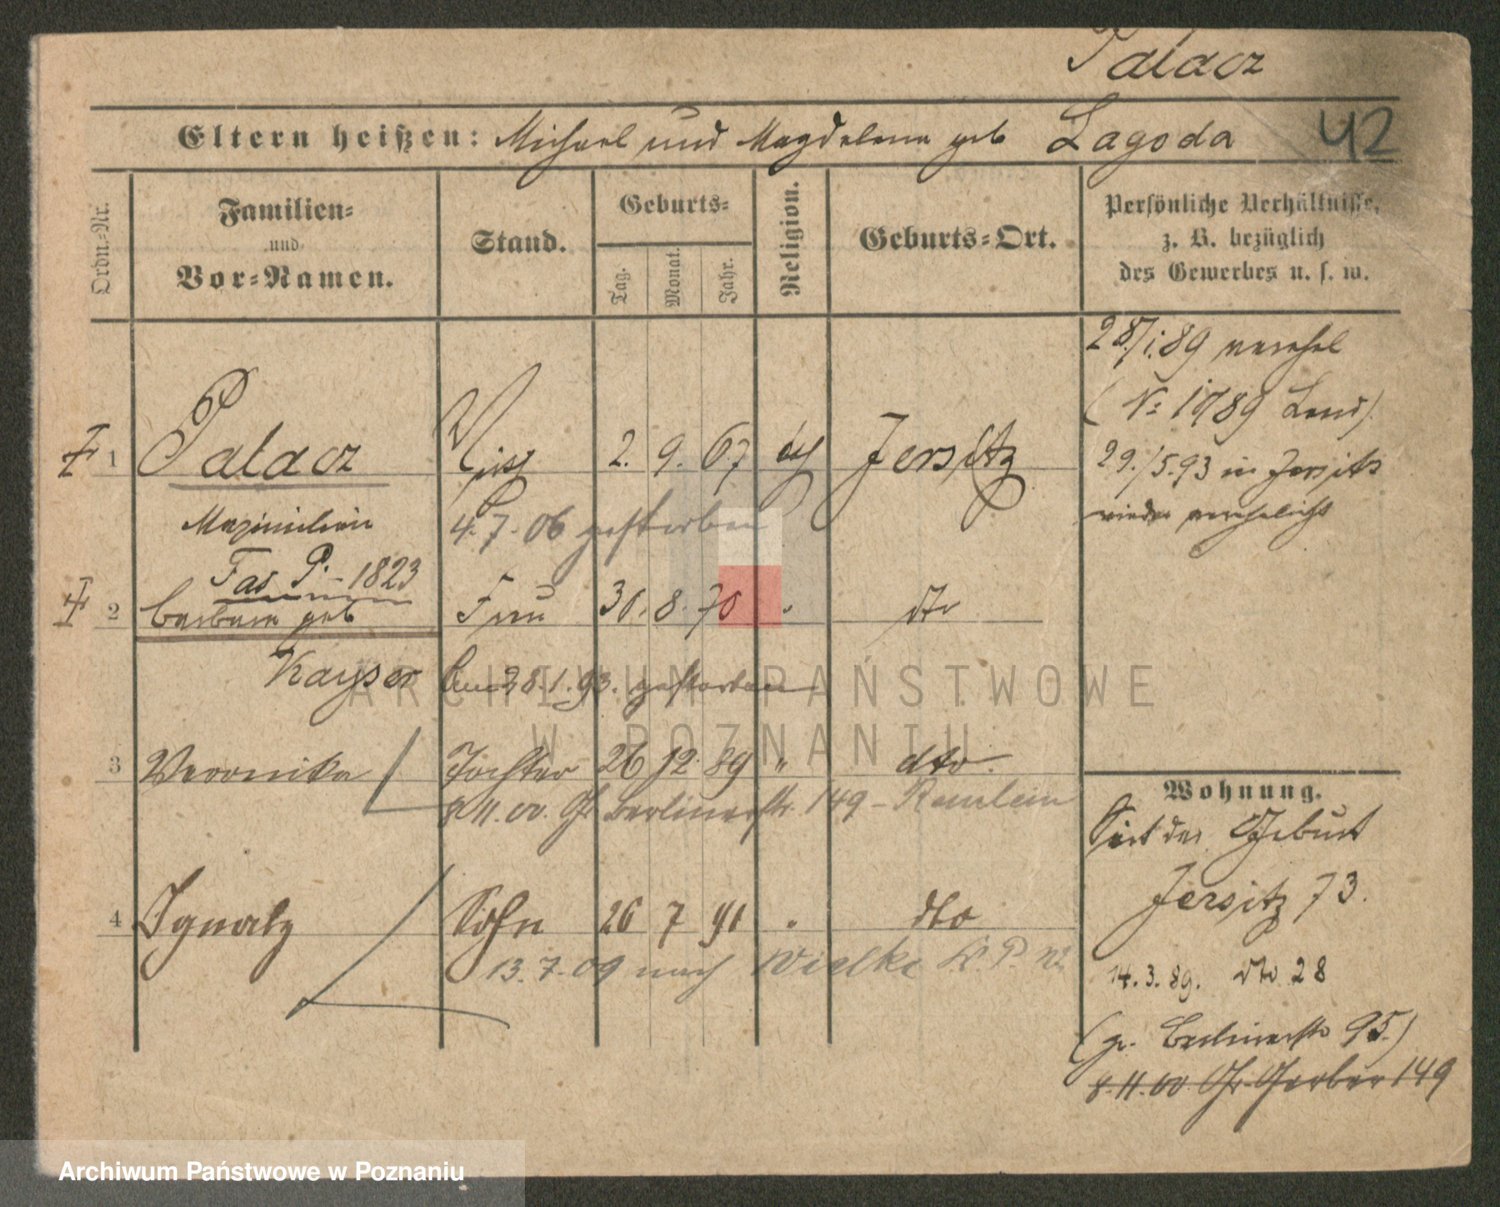 Palacz
Eltern heißen: Michael und Magdalena geb Lagoda 42
Ordn.-Nr.
Familien-
und
Vor-Namen.
Stand.
Geburts-
Tag.
Monat.
Jahr.
Religion.
Geburts-Ort.
Persönliche Verhältnisse,
z. B. bezüglich
des Gewerbes u. s. w.
28/1.89 verehel
(No 1789 Land).
29./5.93 in Jersitz
wieder verehelicht
1 Palacz 2. 9. 67 Jersitz
Maximilian
4.7.06 gestorben
Fas. P. - 1823
2 Barbara geb Frau 8. 70 " dto
Kayser 28.1.93. gestorben
3 Veronika Tochter 26 12 89 " dto.
8.11.00. Gr Berlinerstr. 149 -
4 Ignatz Sohn 26 7 91 " dto
13.7.09 nach Wielke
Wohnung.
Seit der Geburt
Jersitz 73.
14.3.89. dto 28
(gr. Berlinerstr 95)
8.11.00 Gr Gerber 149
ARCHIWUM PAŃSTWOWE
W POZNANIU
Archiwum Państwowe w Poznaniu